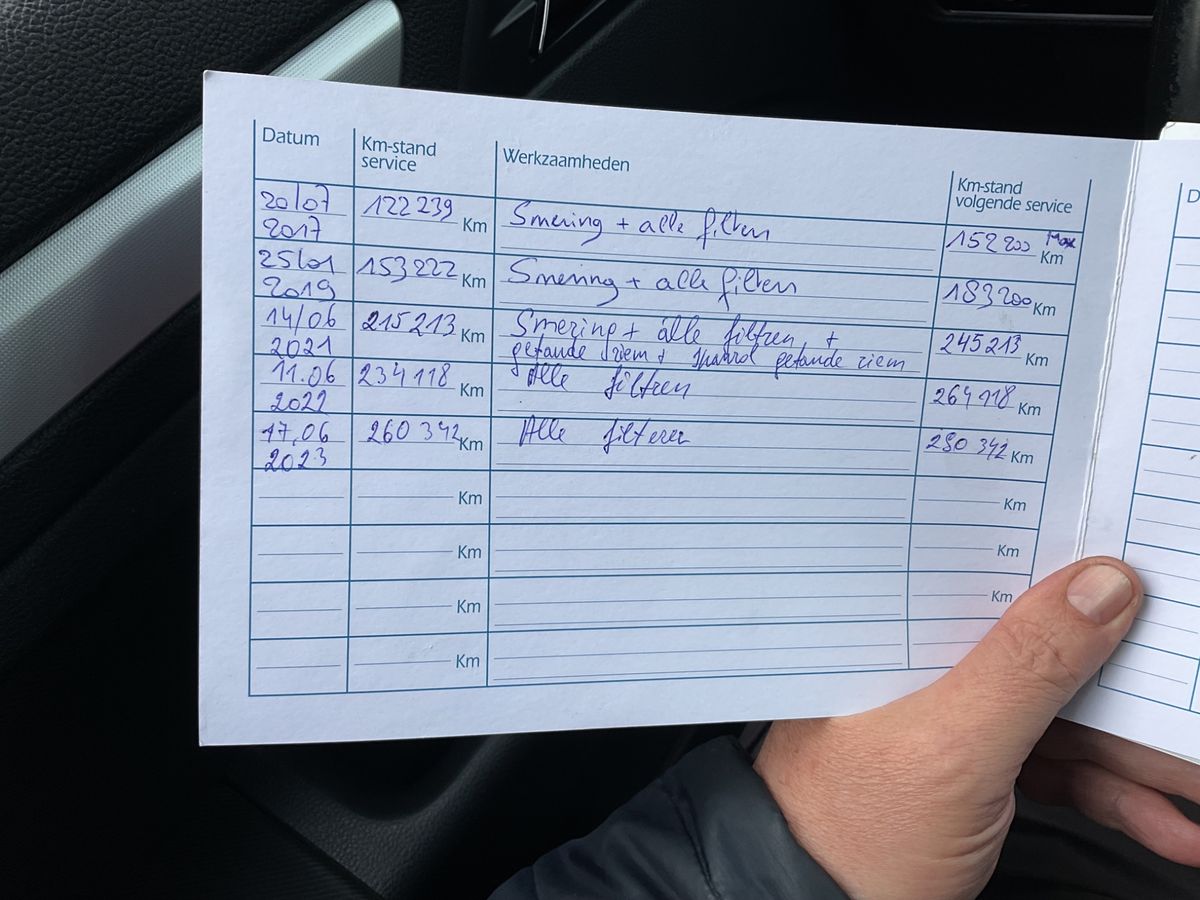 Datum Km-stand service Werkzaamheden Km-stand volgende service
20/07 2017 122 239 Km Smering + alle filters 152 200 Max Km
25/01 2019 153 222 Km Smering + alle filters 183 200 Km
14/06 2021 215 213 Km Smering + alle filtren + 245 213 Km
riem + riem
11.06 2022 234 118 Km Alle filtren 264 118 Km
17.06 2023 260 342 Km Alle filteren 290 342 Km
Km Km
Km Km
Km Km
Km
D